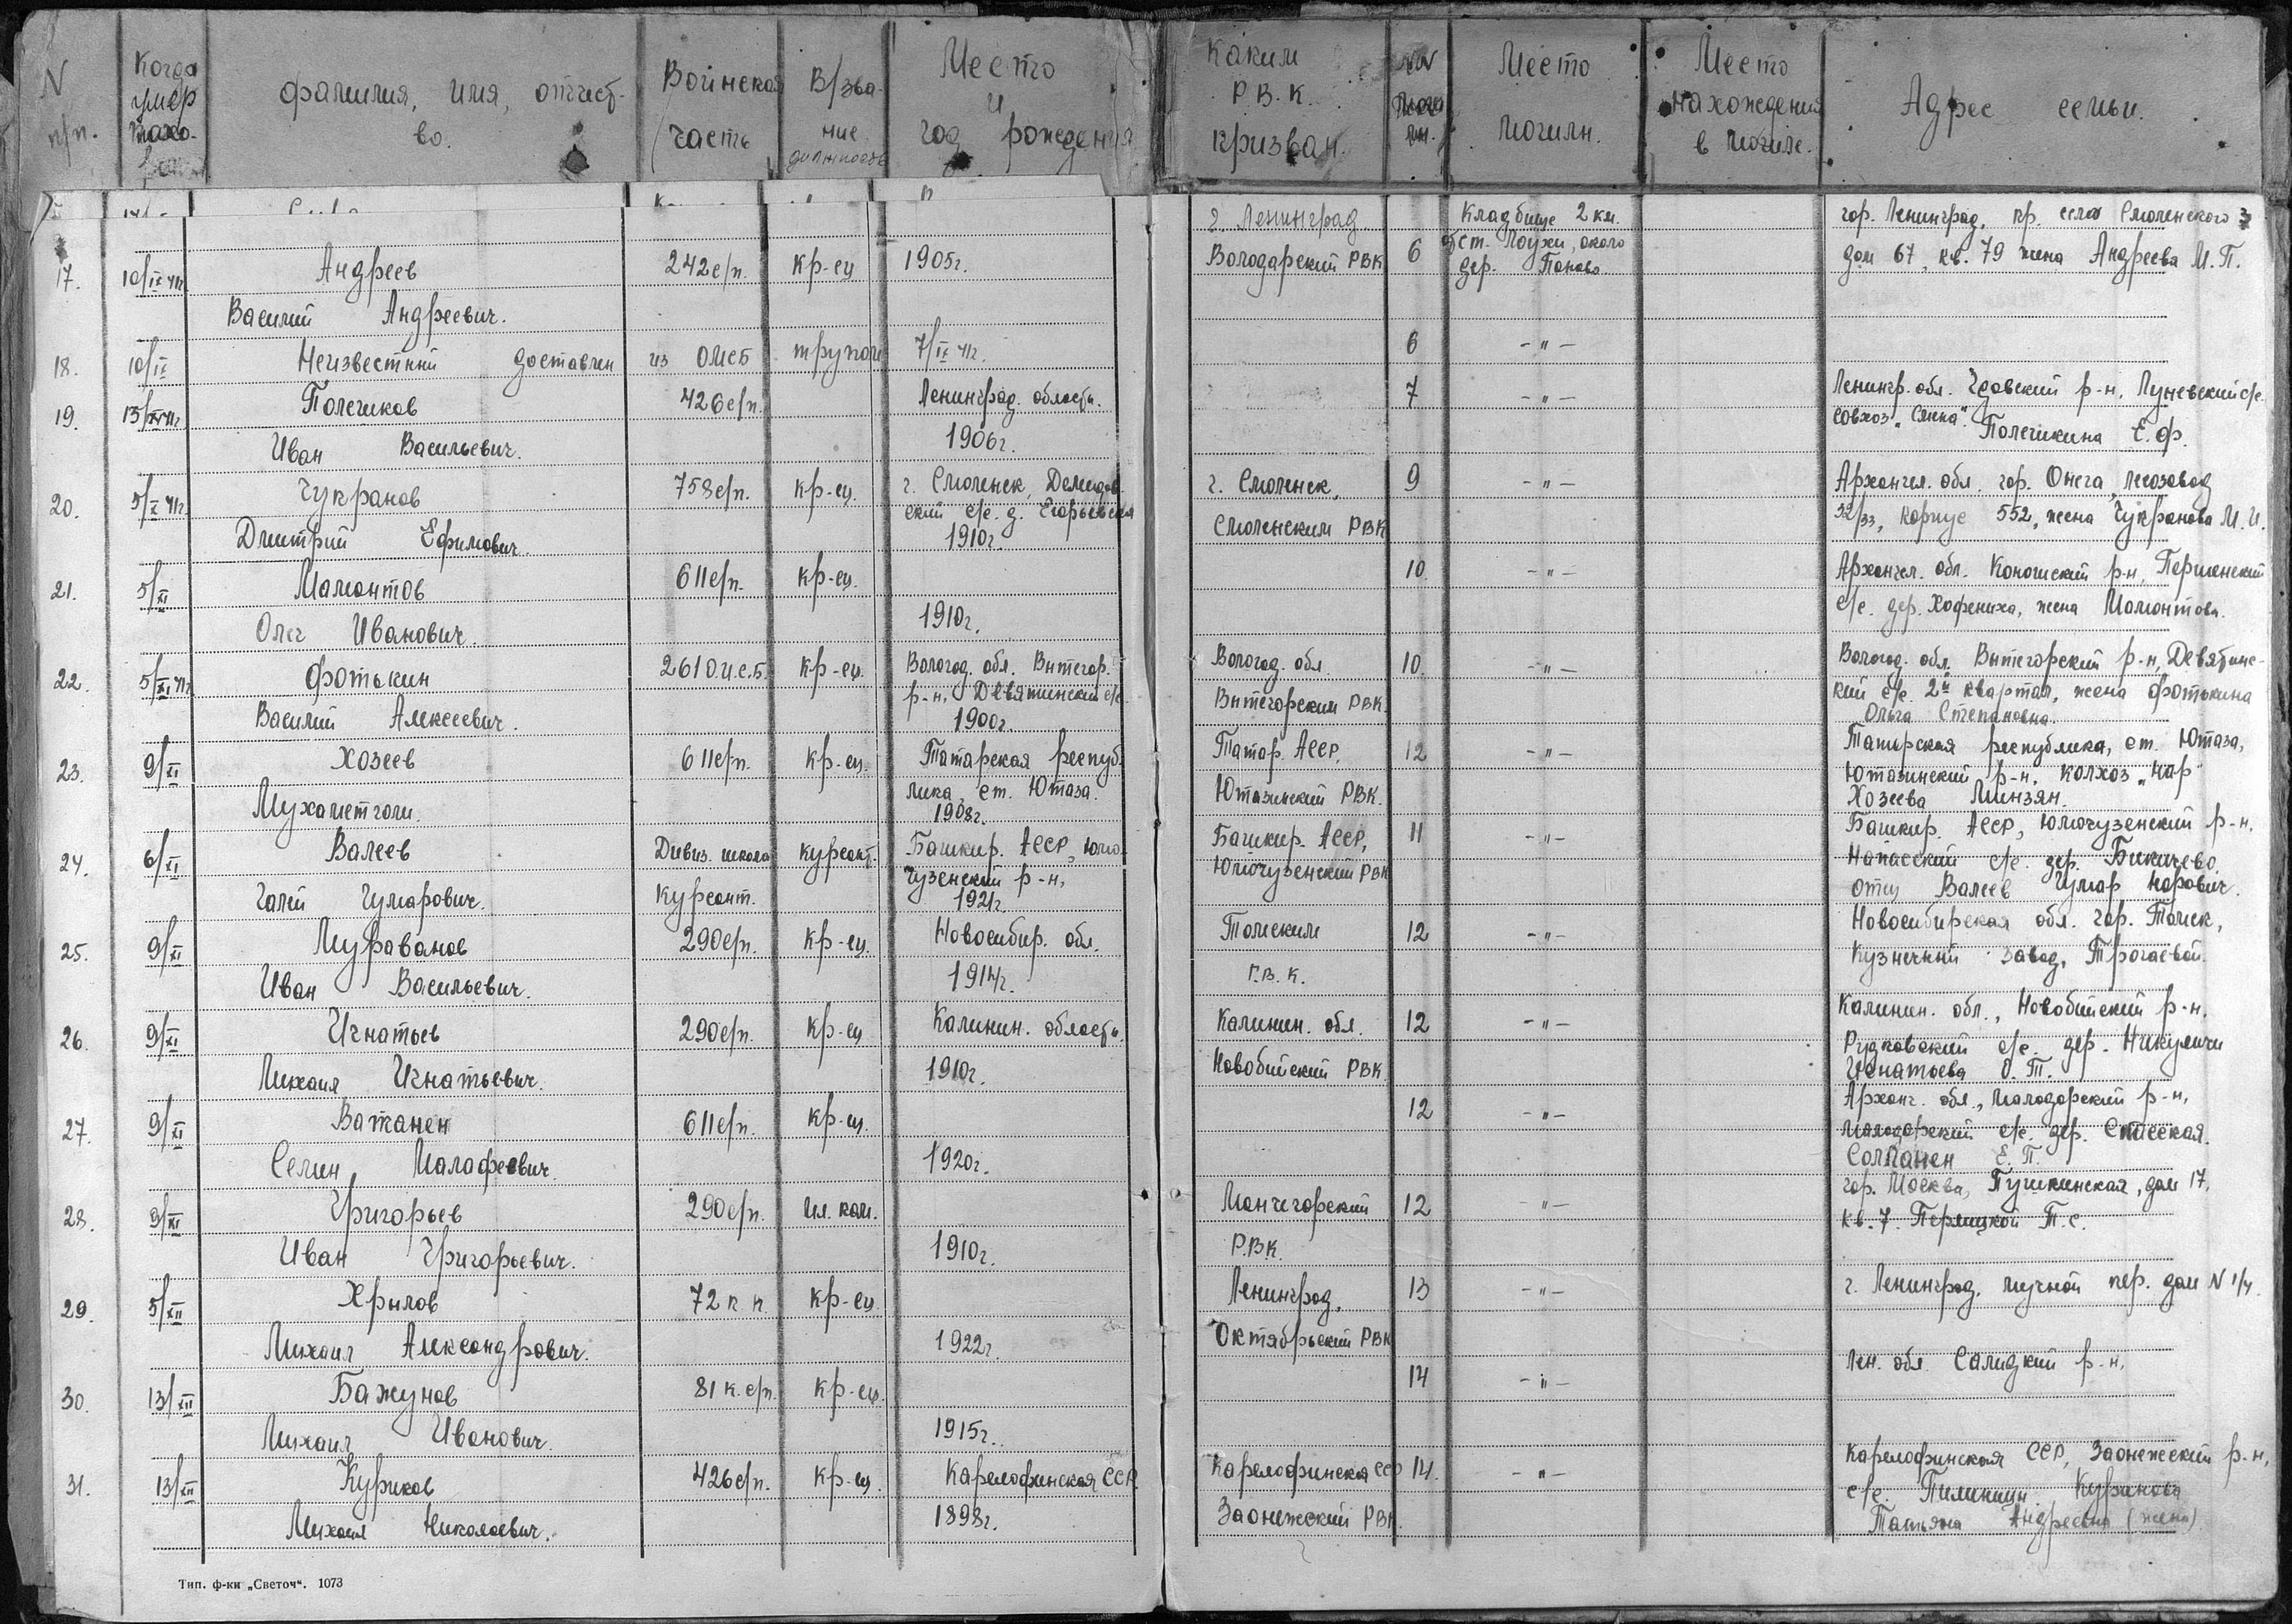 N п/п.
Когда умер
Фамилия, имя, отчест-во.
Воинская часть
В/зва-ние должность
Место и год рождения
Каким Р.В.К. призван.
Место могилы.
Место нахождения в могиле.
Адрес семьи.
г. Ленинград Кладбище 2 км. гор. Ленинград, пр. села Смоленского
17. 10/IX 41г Андреев 242 с/п. кр-ец 1905г. Володарский РВК 6 от ст. Лоухи, около дер. Паново дом 67, кв. 79 жена Андреева М.П.
Василий Андреевич.
18. 10/IX Неизвестный доставлен из ОМСБ трупом 7/IX 41г. 6 -"-
19. Полешков 426 с/п. Ленинград. область. 7 -"- Ленингр. обл. р-н, с/с.
Иван Васильевич. 1906г. совхоз Полешкина Е.Ф.
20. 5/X 41г. Чукранов 758 с/п. кр-ец. г. Смоленск, Демидов г. Смоленск, 9 -"- Архангел. обл. гор. Онега, лесозавод
ский с/с. д. Егорьевская 32/33, корпус 552, жена Чукранова М.И.
Дмитрий Ефимович. 1910г. Смоленским РВК
21. 5/XI Мамонтов 611 с/п. кр-ец. 10. -"- Архангел. обл. Коношский р-н,
Олег Иванович. 1910г. с/с. дер. жена Мамонтова.
22. 5/XI 41г Фотькин 261 О.И.С.Б. кр-ец. Вологод. обл. Вытегор. Вологод. обл. 10. -"- Вологод. обл. Вытегорский р-н, Девятинс-
р-н. Девятинский с/с. Вытегорским РВК. кий с/с. 2й квартал, жена Фотькина
Василий Алексеевич. 1900г. Ольга Степановна.
23. 9/XI Хозеев 611 с/п. кр-ец. Татарская респуб Татар. АССР, 12 -"- Татарская республика, ст. Ютаза,
лика, ст. Ютаза. Ютазинский РВК. Ютазинский р-н. колхоз
Мухаметгали. 1908г. Хозеева Минзян.
24. 6/XI Валеев Дивиз. школа курсант. Башкир. АССР, Юмо Башкир. АССР, 11 -"- Башкир. АССР, Юмогузенский р-н.
гузенский р-н, Юмогузенский РВК с/с. дер. Бикичево.
Галей Гумарович. Курсант. 1921г. отец Валеев Гумар
25. 9/XI Мураванов 290 с/п. кр-ец. Новосибир. обл. Томским 12 -"- Новосибирская обл. гор. Томск,
Иван Васильевич. 1914г. Г.В.К. Кузнечный завод, Трогаевой.
26. 9/XI Игнатьев 290 с/п. кр-ец Калинин. область. Калинин. обл. 12 -"- Калинин. обл., Новобийский р-н,
Рудковский с/с. дер. Никуличи
Михаил Игнатьевич. 1910г. Новобийский РВК. Игнатьева О.Т.
27. 9/XI Ватанен 611 с/п. кр-ец. 12 -"- Арханг. обл., р-н,
с/с. дер. Спасская.
Семин Малафеевич 1920г. Е.П.
28. 9/XI Григорьев 290 с/п. мл. ком. Мончегорский 12 -"- гор. Москва, Пушкинская, дом 17,
кв. 7. Т.С.
Иван Григорьевич. 1910г. Р.В.К.
29. 5/XII Хрылов 72 п. п. кр-ец. Ленинград, 13 -"- г. Ленинград, мучной пер. дом N 1/4.
Михаил Александрович. 1922г. Октябрьский РВК
30. 13/XII Бажунов 81 к. с/п. кр-ец. 14 -"- Лен. обл. р-н,
Михаил Иванович. 1915г.
31. 13/XII Куриков 426 с/п. кр-ец. Карелофинская ССР. Карелофинская ССР 14. -"- Карелофинская ССР, Заонежский р-н,
с/с.
Михаил Николаевич. 1898г. Заонежский РВК. Татьяна Андреевна (жена)
Тип. ф-ки „Светоч“. 1073